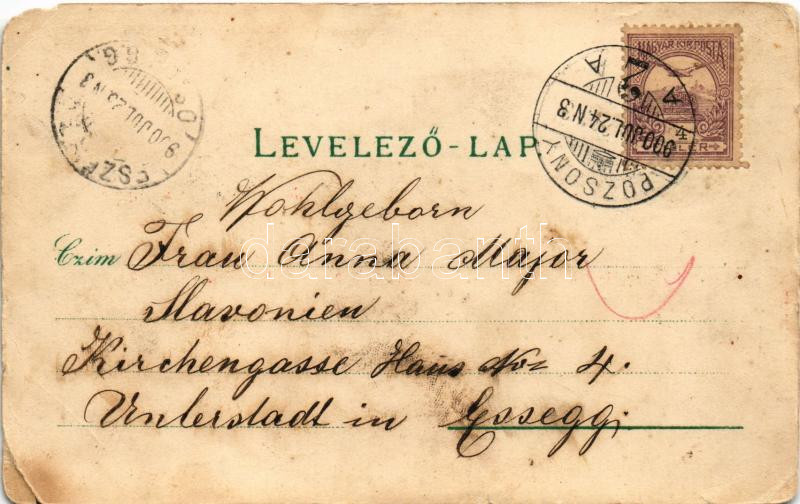 MAGYAR KIR. POSTA
POZSONY
900 JUL. 24. N 3
A
4
900 JUL 25 N 3
LEVELEZŐ-LAP
Wohlgeborn
Czim Frau Anna Major
Slavonien
Kirchengasse Haus No 4.
Unterstadt in Essegg
darabanth